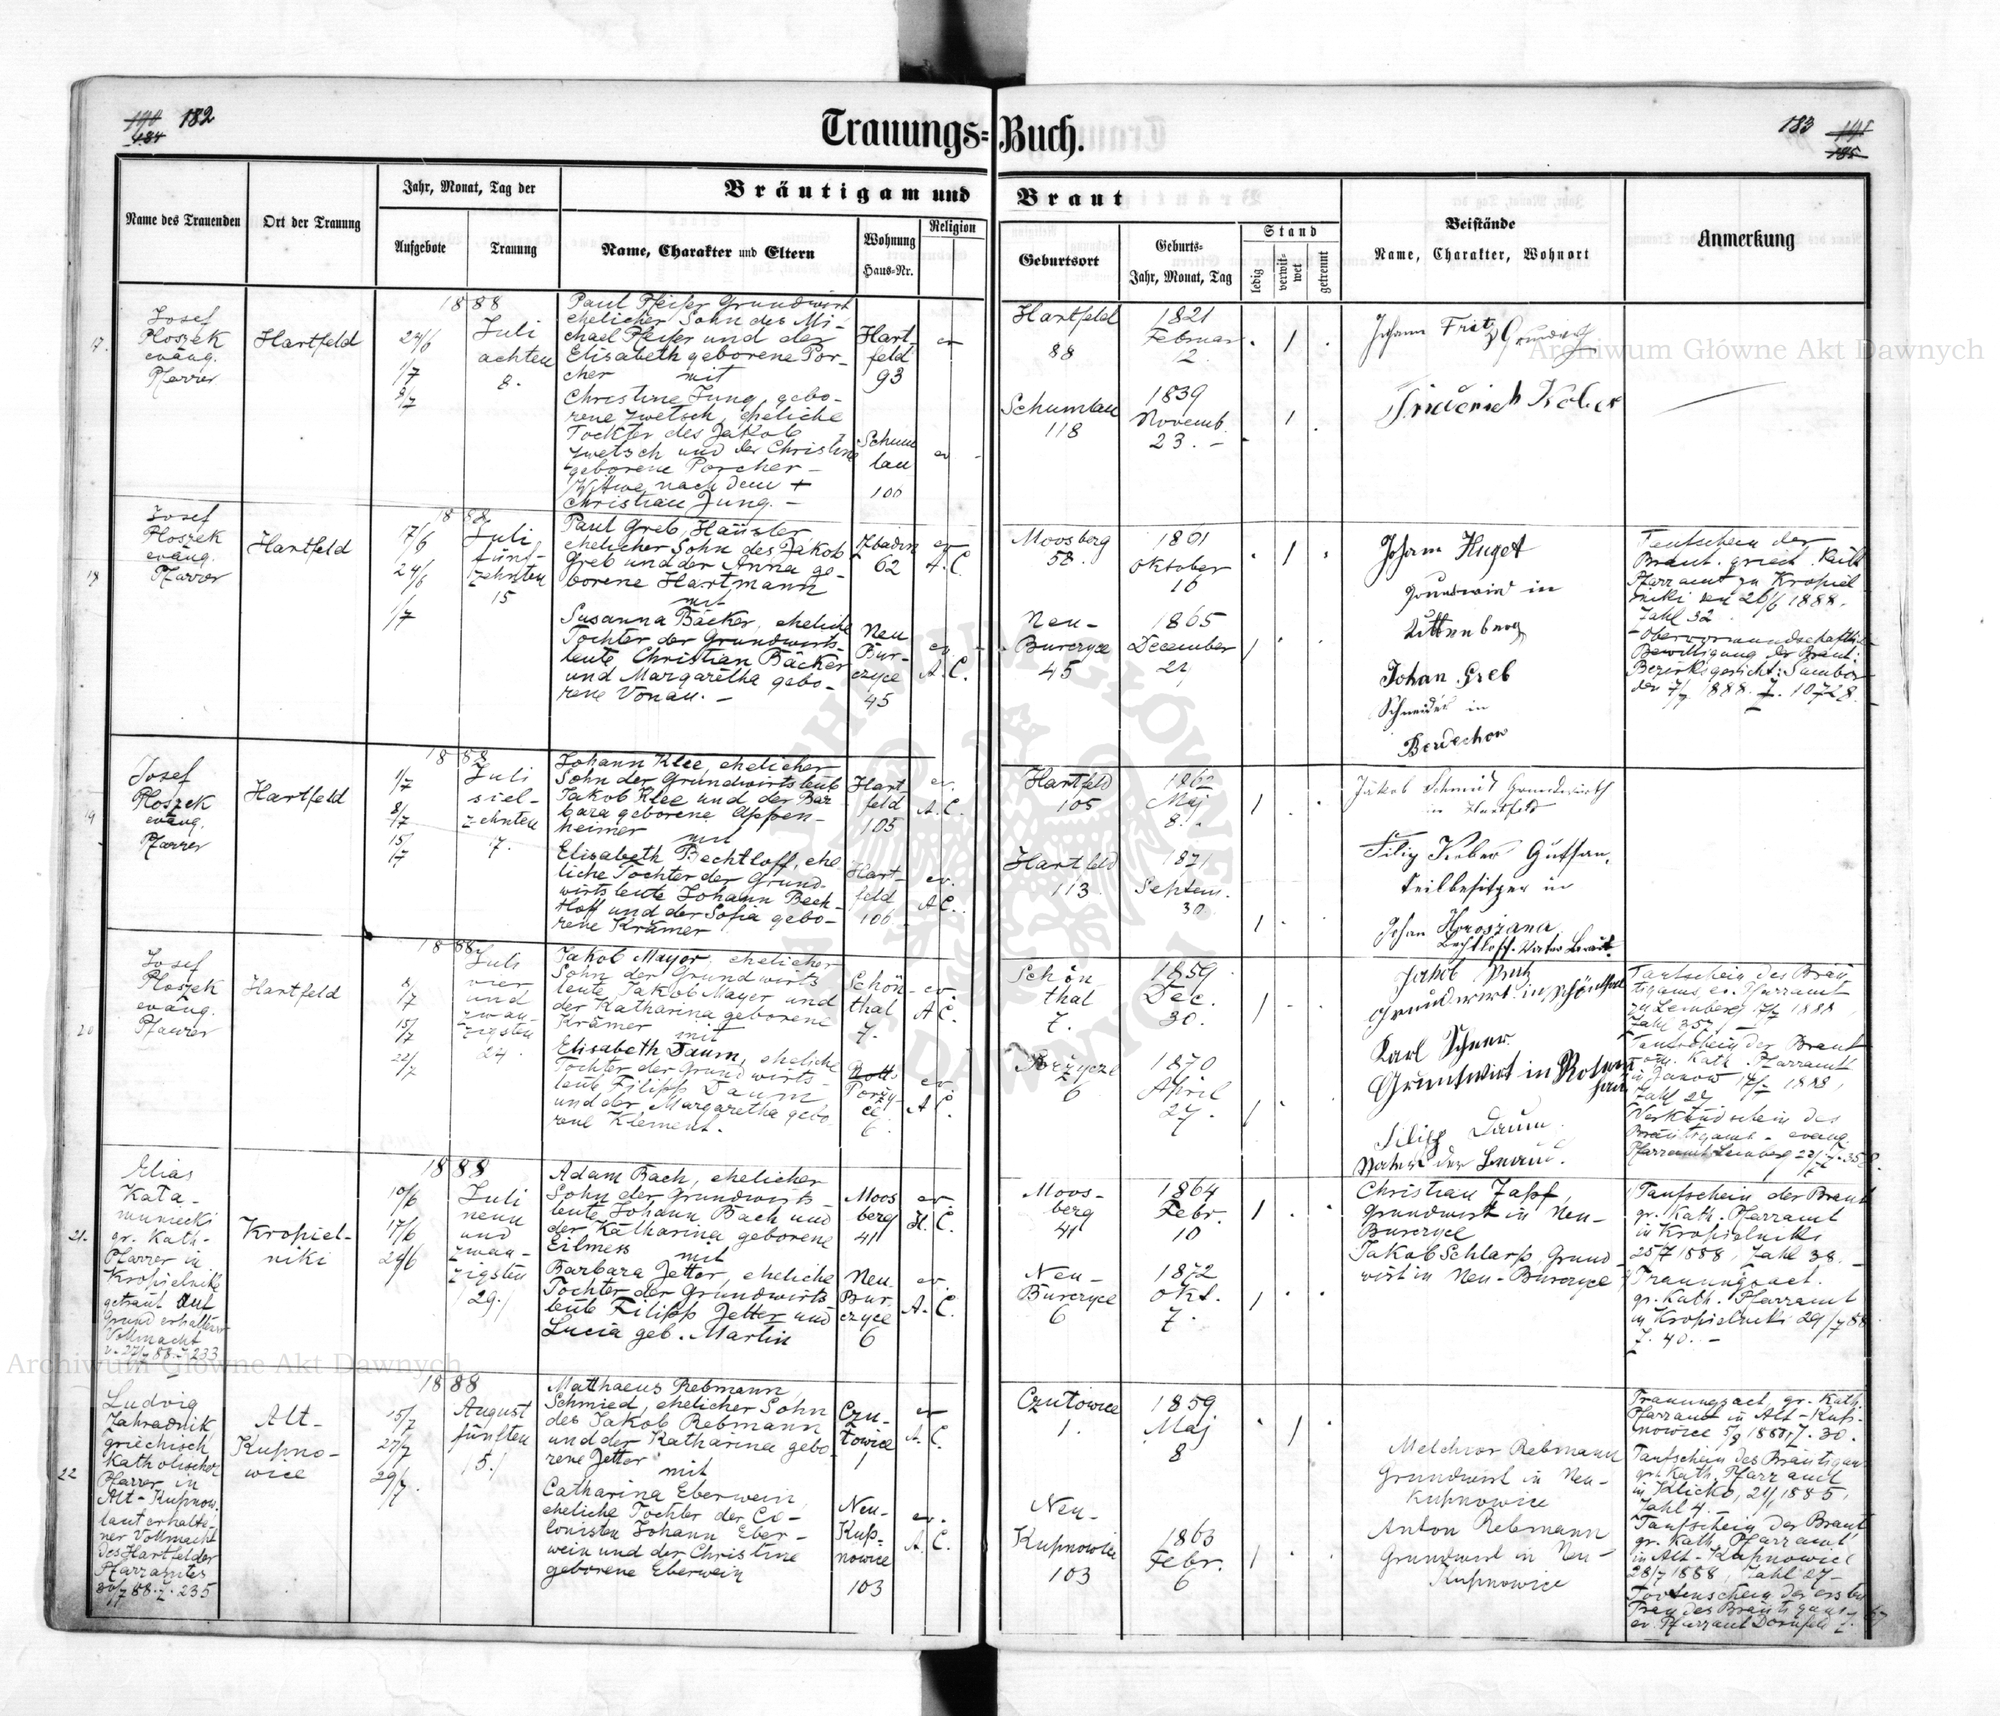 182
Trauungs=Buch.
183
Name des Trauenden
Ort der Trauung
Jahr, Monat, Tag der
Aufgebote
Trauung
Bräutigam und Braut
Name, Charakter und Eltern
Wohnung
Haus=Nr.
Religion
Geburtsort
Geburts=
Jahr, Monat, Tag
Stand
ledig
verwit=
wet
getrennt
Beistände
Name, Charakter, Wohnort
Anmerkung
17.
Josef
Ploszek
evang.
Pfarrer
Hartfeld
1888
24/6
1/7
8/7
Juli
achten
8.
Paul Pfeifer Grundwirt
ehelicher Sohn des Mi-
chael Pfeifer und der
Elisabeth geborene Por-
cher mit
Christine Jung, gebo-
rene Zwetsch, eheliche
Tochter des Jakob
Zwetsch und der Christine
geborene Porcher -
Witwe nach dem +
Christian Jung. -
Hart-
feld
93
Schum
lau
100
ev
ev
Hartfeld
88
1821
Februar
12
Schumlau
118
1839
Novemb.
23. -
Johann Fritz
Friederich Kober
18
Josef
Ploszek
evang.
Pfarrer
Hartfeld
1888
17/6
24/6
1/7
Juli
fünf-
zehnten
15
Paul Greb, Häusler,
ehelicher Sohn des Jakob
Greb und der Anna ge-
borene Hartmann
mit
Susanna Bäcker, eheliche
Tochter der Grundwirts-
leute, Christian Bäcker
und Margaretha gebo-
rene Vonau. -
62
Neu
Bur-
czyce
45
ev
A. C.
ev.
A. C.
Moosberg
58.
1801
Oktober
16
Neu-
Burczyce
45
1865
December
Johann Huget
Grundwirt in
Johan Greb
Schneider in
Taufschein der
Braut. griech. kath
Pfarramt zu Kropiel
niki 26/6 1888.
Zahl 32.
Obervormundschaftliche
Bewilligung der Braut:
Bezirksgericht: Sambor
den 7/7 1888. Z. 10728.
19
Josef
Ploszek
evang.
Pfarrer
Hartfeld
1888
1/7
8/7
15/7
Juli
sieb-
zehnten
17.
Johann Klee, ehelicher
Sohn der Grundwirtsleute
Jakob Klee und der Bar
bara geborene Oppen-
heimer mit
Elisabeth Bechtloff, ehe
liche Tochter der Grund-
wirtsleute Johann Bech-
tloff und der Sofia gebo-
rene Krämer
Hart-
feld
105
Hart-
feld
106
ev.
A. C.
ev.
A. C.
Hartfeld
105
1862
Maj
8.
Hartfeld
113
1871
Septem.
30.
Jakob Schmidt Grundwirth
in Hartfeld
Filip Kober Gutsan-
teilbesitzer in
Johan
Bechtloff. Vater Braut
20
Josef
Ploszek
evang.
Pfarrer
Hartfeld
1888
8/7
15/7
22/7
Juli
vier
und
zwan-
zigsten
24.
Jakob Mayer, ehelicher
Sohn der Grundwirts
leute Jakob Mayer und
der Katharina geborene
Krämer mit
Elisabeth Daum, eheliche
Tochter der Grundwirts-
leute Filipp Daum
und der Margaretha gebo
rene Klement.
Schön-
thal
7.
Porzy-
ce
6.
ev.
A. C.
ev.
A. C.
Schön
thal
7.
1859
Dec.
30.
Porzycze
6
1870
April
27.
Jakob
Grundwirt in Schönthal
Karl Scherer
Grundwirt in Rosen
Filipp Daum
Vater der Braut.
Taufschein des Bräu
tigams, ev. Pfarramt
zu Lemberg 17/7 1888,
Taufschein der Braut
rom. Kath. Pfarramt
in Janow 17/7 1888,
Zahl 27
Verkündschein des
Bräutigams - evang.
Pfarramt Lemberg 22/7
21.
Elias
Kata-
muniecki
gr. Kath-
Pfarrer in
Kropielniki
getraut auf
Grund erhaltener
Vollmacht
Kropiel-
niki
1888
10/6
17/6
Juli
neun
und
zwan-
zigsten
29.
Adam Bach, ehelicher
Sohn der Grundwirts
leute Johann Bach und
der Katharina geborene
Eilmess mit
Barbara Jetter, eheliche
Tochter der Grundwirts
leute Filipp Jetter und
Lucia geb. Martin
Moos
berg
41
Neu
Bur-
czyce
6
ev
A. C.
ev.
A. C.
Moos-
berg
41
1864
Febr.
10
Neu-
Burczyce
6
1872
Okt.
7.
Christian Zapf,
Grundwirt in Neu-
Burczyce
Jakob Schlarp, Grund-
wirt in Neu-Burczyce
Taufschein der Braut
gr. Kath. Pfarramt
in Kropielniki
25/7 1888, Zahl 38. -
Trauungsact.
gr. Kath. Pfarramt
in Kropielniki 29/7 88
Z. 40. -
22
Ludvig
Zahradnik
griechisch
katholischer
Pfarrer in
Alt-Kupnow.
laut erhalte-
ner Vollmacht
des Hartfelder
Pfarramtes
30/7 88. Z. 235
Alt-
Kupno-
wice
1888
15/7
29/7.
August
fünften
5.
Matthaeus Rebmann,
Schmied, ehelicher Sohn
des Jakob Rebmann
und der Katharina gebo
rene Jetter mit
Catharina Eberwein,
eheliche Tochter der Co-
lonisten Johann Eber-
wein und der Christine
geborene Eberwein
Czu-
lowice
1
Neu-
Kup-
nowice
103
ev
A. C.
ev.
A. C.
Czulowice
1.
1859
Maj
8
Neu-
Kupnowice
103
1863
Febr.
6
Melchior Rebmann
Grundwirt in Neu-
Kupnowice
Anton Rebmann
Grundwirt in Neu-
Kupnowice
Trauungsact, gr. Kath.
Pfarramt in Alt-Kup-
nowice 5/8 1888, Z. 30.
Taufschein des Bräutigams
gr. Kath. Pfarramt
Zahl 4. -
Taufschein der Braut
gr. Kath. Pfarramt
in Alt-Kupnowice
28/7 1888, Zahl 27-
Todtenschein der ersten
Frau des Bräutigams
ev. Pfarramt Dornfeld
Archiwum Główne Akt Dawnych
Archiwum Główne Akt Dawnych
ARCHIWUM GŁÓWNE AKT DAWNYCH